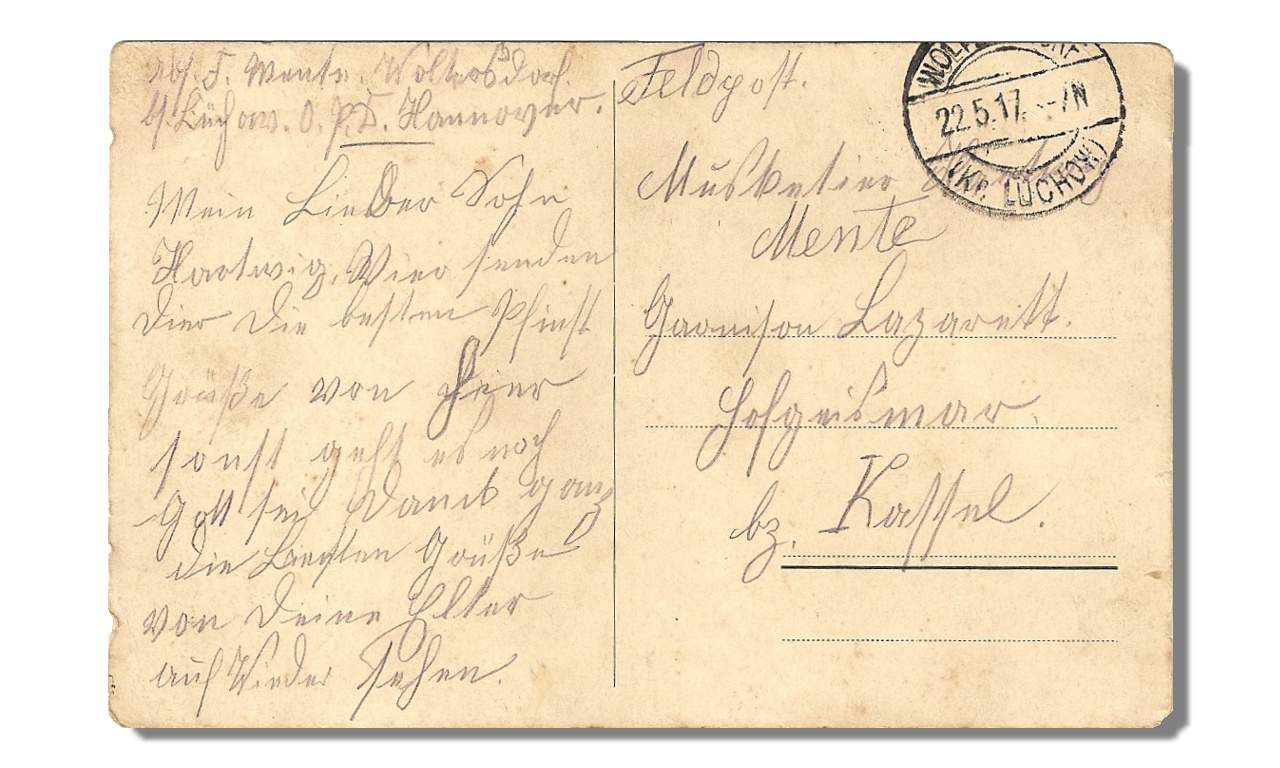 Abs. F. Mente. Woltersdorf.
b/ Lüchow. O. P. D. Hannover.
Mein Lieber Sohn
Hartwig. Wier senden
dier die besten Pfinst
Grüße von hier
sonst geht es noch
Gott sei Dank ganz
die Besten Grüße
von deine Elter
auf Wieder Sehen.
Feldpost.
22.5.17. -7N
(Kr. LÜCHOW)
Musketier
Mente
Garnison Lazarett.
Hofgeismar.
bz. Kassel.